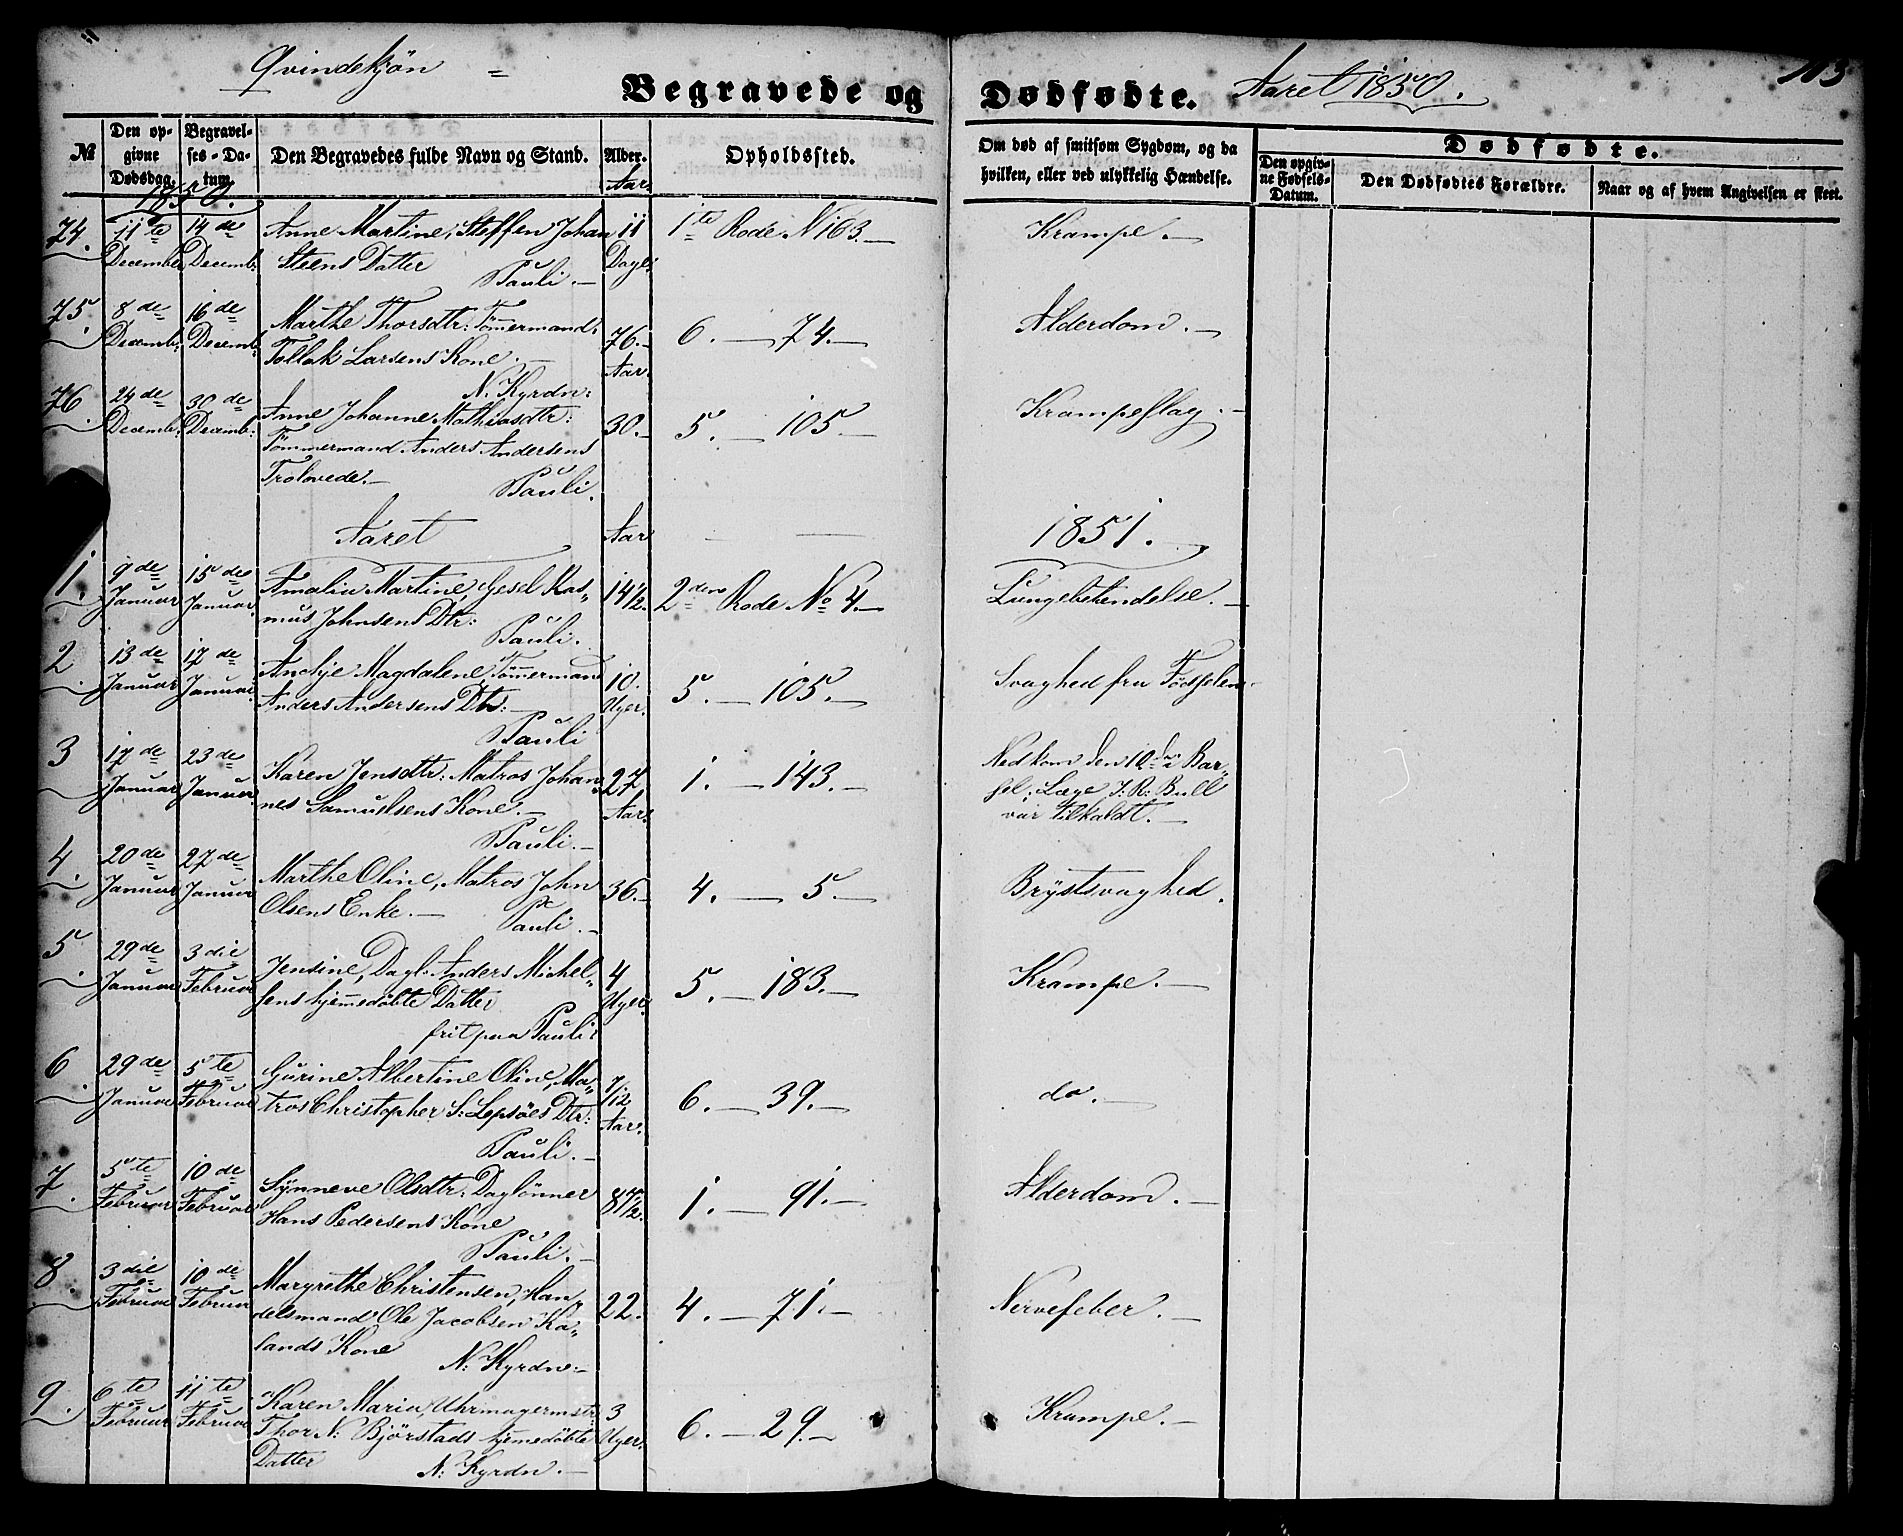 Qvindekjøn =
Begravede og Dødfødte. Aaret 1850.
103
No
Den opgivne Dødsdag.
Begravelses-Datum.
Den Begravedes fulde Navn og Stand.
Alder.
Opholdssted.
Om død af smitsom Sygdom, og da
hvilken, eller ved ulykkelig Hændelse.
Dødfødte.
Den opgivne Fødsels-Datum.
Den Dødfødtes Forældre.
Naar og af hvem Angivelsen er skeet.
1850.
Aar.
74. 11te 14de Anne Martine, Steffen Johan 11 1ste Rode N 163.— Krampe.—
December Decemb: Steens Datter Dage.
Pauli.—
75. 8de 16de Marthe Thorsdtr: Tømmermand 76.— 6.— 74.— Alderdom.—
Decemb: Decemb: Tollak Larsens Kone.— Aar.
N. Kyrdn:
76. 24de 30de Anne Johanne Mathiasdtr: 30.— 5.— 105.— Krampeslag.—
Decemb: Decemb: Tømmermand Anders Andersens
Trolovede.— Pauli.
Aaret Aar 1851.
1. 9de 15de Amalia Martine, Gesel Ras- 14½. 2den Rode No 4.— Lungebetændelse.—
Januar Januar mus Johnsens Dtr:
Pauli.
2. 13de 17de Anchje Magdalene, Tømmermand 10. 5.— 105.— Svaghed fra Fødselen.
Januar Januar Anders Andersens Dtr:— Uger.
Pauli
3 17de 23de Karen Jensdtr: Matros Johan- 27 1.— 143.— Nedkom den 10de i Bar-
Januar Januar nes Samuelsens Kone.— Aar. sel. Læge J. R. Bull
Pauli.— var tilkaldt.—
4. 20de 27de Marthe Oline, Matros John 36.— 4.— 5.— Brÿstsvaghed.
Januar Januar Olsens Enke.— Pauli.—
5. 29de 3die Jensine, Dagl: Anders Michel- 4 5.— 183.— Krampe.—
Januar Februar sens hjemmedøbte Datter Uger.
frit paa Pauli:
6. 29de 5te Gurine Albertine Oline, Ma- 7/12 6.— 39.— do.—
Januar Februar tros Christopher S. Lepsöes Dtr: Aar.
Pauli.—
7. 5te 10de Synneve Olsdtr: Daglønner 87½. 1.— 91.— Alderdom.—
Februar Februar Hans Pedersens Kone
Pauli.—
8. 3die 10de Margrethe Christensen, Han- 22. 4.— 71.— Nervefeber.—
Februar Februar delsmand Ole Jacobsen Ka-
lands Kone N: Kyrdn:—
9. 6te 11te Karen Maria, Uhrmagermstr: 3 6.— 29.— Krampe.—
Februar Februar Thor N: Bjørstads hjemmedøbte Uger.
Datter N: Kyrdn.—